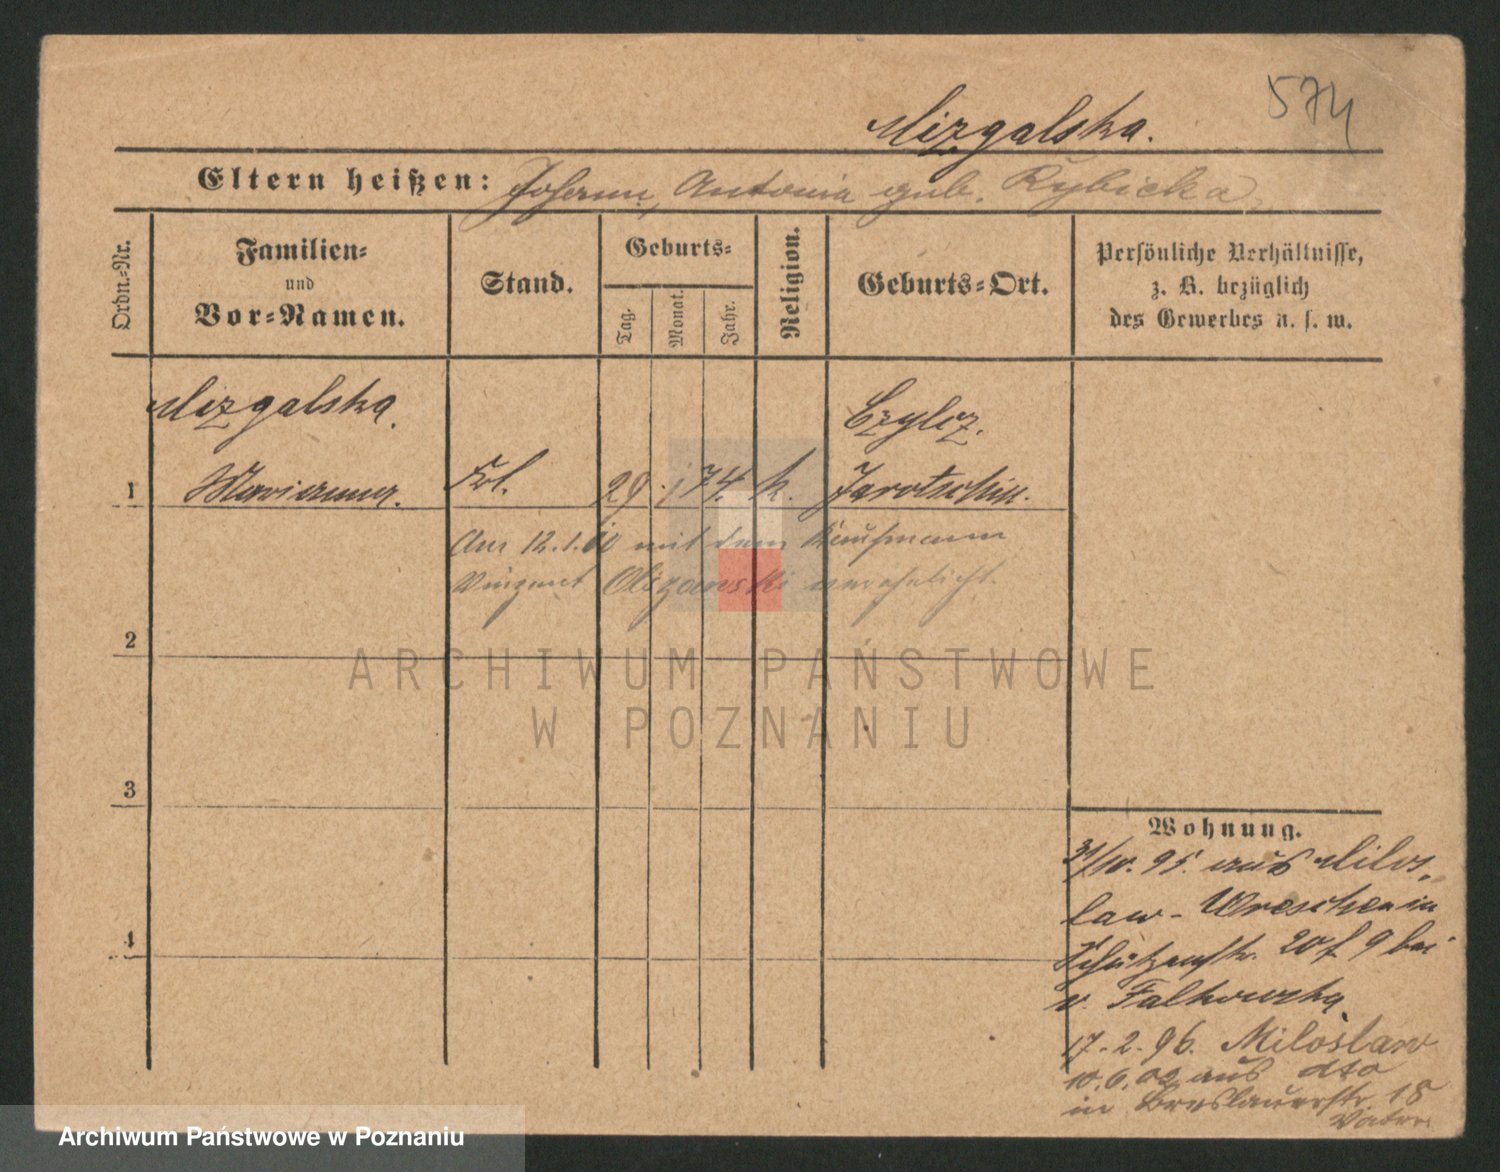 574
Mizgalska.
Eltern heißen: Johann, Antonia geb. Rybicka,
Ordn.-Nr.
Familien-
und
Vor-Namen.
Stand.
Geburts-
Tag.
Monat.
Jahr.
Religion.
Geburts-Ort.
Persönliche Verhältnisse,
z. B. bezüglich
des Gewerbes u. s. w.
Mizgalska.
1 Marianna. Frl. 29. 74. k. Jarotschin.
Am 12.1. mit dem Kaufmann
Vinzent verehelicht.
2
3
4
Wohnung.
31/10. 95. aus Milos-
law - Wreschen in
Schützenstr. 20 f 9 bei
v. Falkowska.
17. 2. 96. Miloslaw
10.6.02 aus dto
in Breslauerstr. 18
Vater
ARCHIWUM PAŃSTWOWE
W POZNANIU
Archiwum Państwowe w Poznaniu